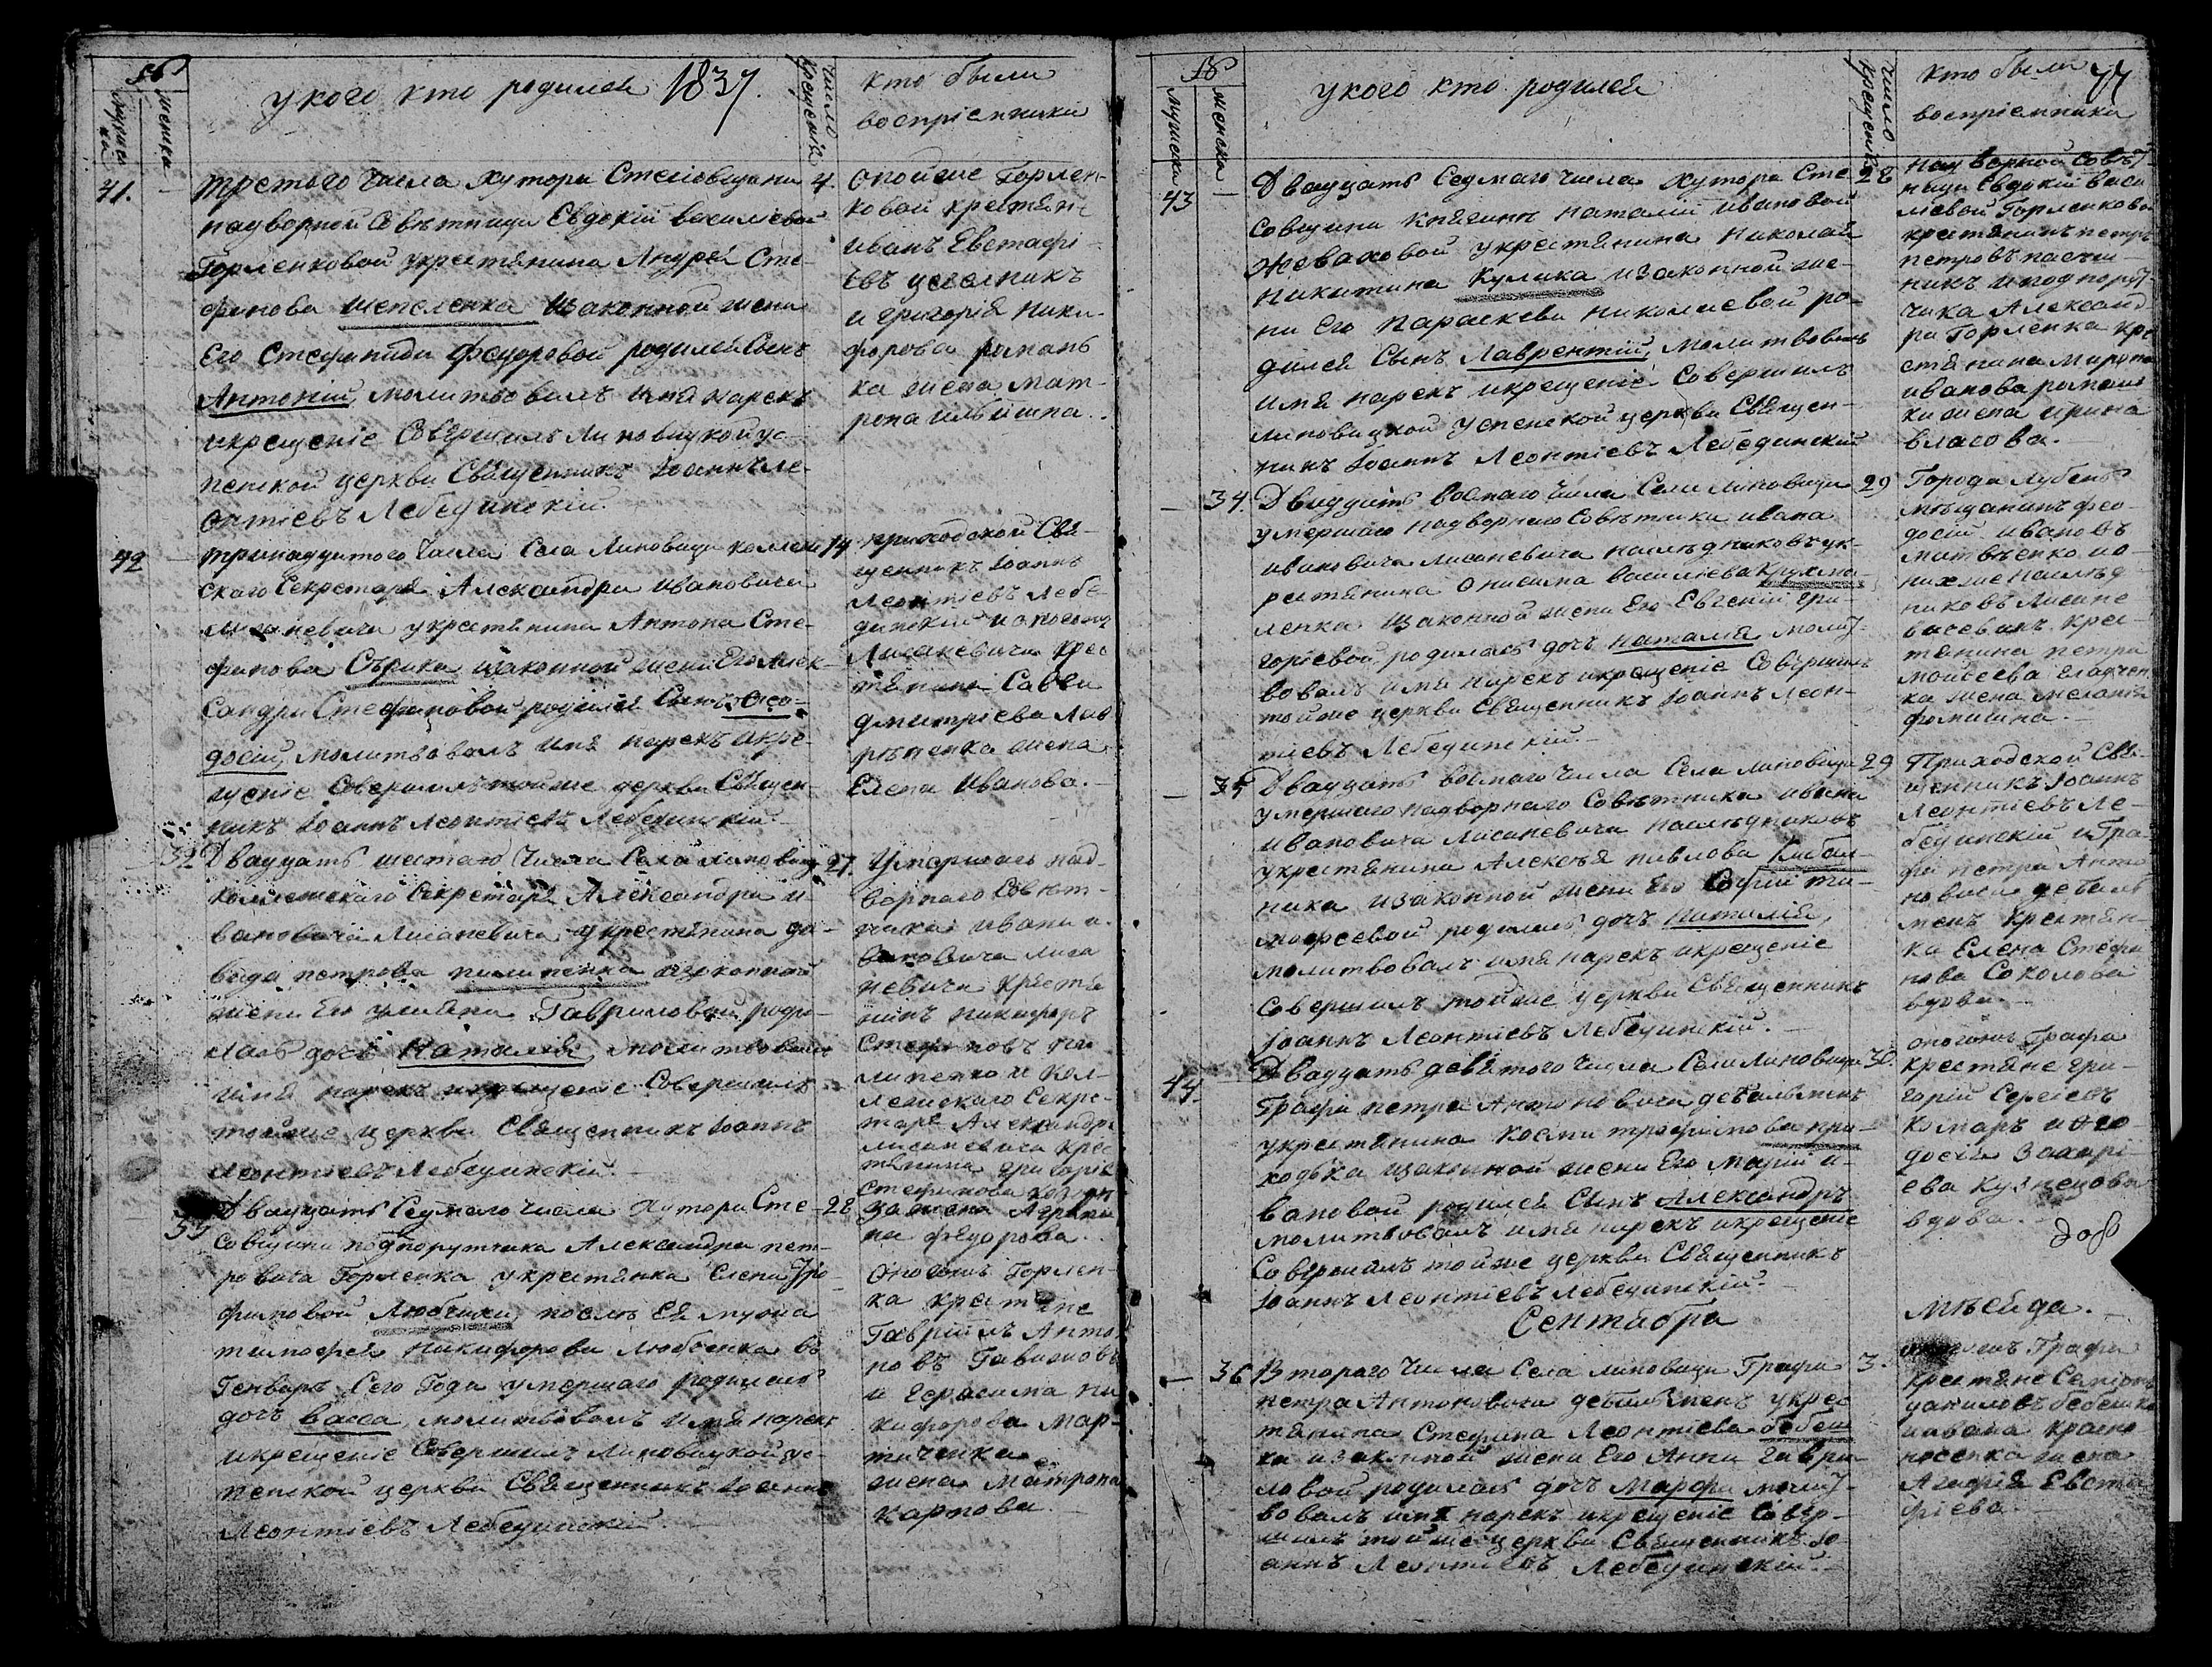 укого кто родился 1837.
число крещенія
кто были
воспріемники
мужеска
женска
41.
третого числа Хутора Стесовщини 4.
надворной Совѣтници Евдокіи василіевой
Горленковой укрестянина Андрея Сте-
фанова шепеленка изаконной жени
Его Стефаниди Федоровой родился Синъ
Антоній, молитвовалъ имя нарекъ
икрещеніе Совершилъ Линовицкой ус-
пенской церкви Священникъ Іоаннъ Ле-
онтіевъ Лебединскій.
онойже Горлен-
ковой крестян-
иванъ Евстафі-
евъ
и григорія Ники-
форова романь
ка жена мат-
рона
42
тринадцятого числа Села Линовици коллеж 14.
скаго Секретаря Александра ивановича
укрестянина Антона Сте-
фанова Сѣрика изаконной жени Его Алек-
Сандри Стефановой родился Синъ Ѳео-
досій, молитвовалъ имя нарекъ икре-
щеніе Совершилъ тойже церкви Священ-
никъ Іоаннъ Леонтіевъ Лебединскій.
приходской Свя-
щенникъ Іоаннъ
Леонтіевъ Лебе-
динскій
Лисаневича крес
тянина Савви
дмитріева Лав
рѣненка жена
Елена Иванова.
32
Двадцать шестаго числа Села линовици 27.
коллежскаго Секретаря Александра и-
вановича Лисаневича укрестянина да-
вида петрова пилипенка изаконной
жени Его уліяни Гавриловой роди-
лась дочь Наталія, молитвовалъ
имя нарекъ икрещеніе Совершилъ
тойже церкви Священникъ Іоаннъ
Леонтіевъ Лебединскій.
Умершаго над-
ворнаго Совѣт-
ника ивана и-
вановича Лиса
невича крестя
нинъ никифоръ
Стефановъ пи
липенко и Кол-
лежскаго Секре-
таря Александра
лисаневича крес
тянина григорія
Стефанова
жена
на федорова.
33
Двадцать Седмаго числа Хутора Сте- 28
Совщини подпорутчика Александра пет-
ровича Горленка укрестянки Елени Тро-
фимовой Любчики послѣ Ея мужа
тимофея Никифорова любченка въ
Генварѣ Сего Года умершаго родилась
дочь васса, молитвовалъ имя нарекъ
икрещеніе Совершилъ Линовицкой ус-
пенской церкви Священникъ Іоаннъ
Леонтіевъ Лебединскій.
оногожъ Горлен-
ка крестяне
Гавріилъ Анто
новъ
и герасима ни
кифорова Мар-
тиченка
жена матрона
карпова.
мужеска
женска
укого кто родился
число крещенія
кто были
воспріемники
77
43
Двадцать Седмаго числа Хутора Сте 28
Совщини княгинѣ наталіи ивановой
Жеваховой укрестянина николая
никитина Кулика изаконной же-
ни Его параскеви николаевой ро-
дился Синъ Лаврентій, молитвовалъ
имя нарекъ икрещеніе Совершилъ
линовицкой Успенской церкви Священ-
никъ Іоаннъ Леонтіевъ Лебединскій
надворной Совѣт
ници Евдокіи васи
ліевой Горленковой
крестянинъ петръ
петровъ пасеч-
никъ иподпорут
чика Александ
ра Горленка кре
стянина мирона
иванова романь
ки жена ирина
власова.
34.
Двадцать восмаго числа Села Линовици 29
умершаго надворнаго Совѣтника ивана
ивановича лисаневича наслѣдниковъ ук-
рестянина онисима василіева Крухма-
ленка изаконной жени Его Евгеніи гри-
горіевой, родилась дочь наталія молит-
вовалъ имя нарекъ икрещеніе Совершилъ
тойже церкви Священникъ Іоаннъ Леон-
тіевъ Лебединскій.
Города Лубенъ
мѣщанинъ фео-
досій ивановъ
матвѣенко ио-
нихже наслѣд-
никовъ Лисане
вичевихъ крес-
тянина петра
моисеева
ка жена меланія
фомишна.
35
Двадцать восмаго числа Села линовици 29
умершаго надворнаго Совѣтника ивана
ивановича лисаневича наслѣдниковъ
укрестянина Алексѣя павлова Кибал-
ника изаконной жени Его Софіи ти-
мофеевой родилась дочь наталія,
молитвовалъ имя нарекъ икрещеніе
Совершилъ тойже церкви Священникъ
Іоаннъ Леонтіевъ Лебединскій.
Приходской Свя-
щенникъ Іоаннъ
Леонтіевъ Ле-
бединскій иГра-
фа петра Анто
новича дебаль
менъ крестян-
ка Елена Стефа
нова Соколова
вдова.
44.
Двадцать девятого числа Села Линовици 30.
Графа петра Антоновича дебальменъ
укрестянина косми трофимова при-
ходька изаконной жени Его Маріи и-
вановой родился Синъ Александръ
молитвовалъ имя нарекъ икрещеніе
Совершилъ тойже церкви Священникъ
Іоаннъ Леонтіевъ Лебединскій.
оногожъ Графа
крестяне гри-
горій Сергіевъ
Комаръ иѲео-
досія Захарі-
ева Кузнецова
вдова.
Сентября
мѣсяца.
36
Втораго числа Села линовици Графа 3.
петра Антоновича дебальменъ укрес
тянина Стефана Леонтіева бебеш
ка изаконной жени Его Анни Гаври
ловой родилась дочь Марфа молит-
вовалъ имя нарекъ икрещеніе Совер-
шилъ тойже церкви Священникъ Іо-
аннъ Леонтіевъ Лебединскій.
оногожъ Графа
крестяне Семіонъ
даниловъ бебешко
иивана красно
носенка жена
Агафія Евста
фіева